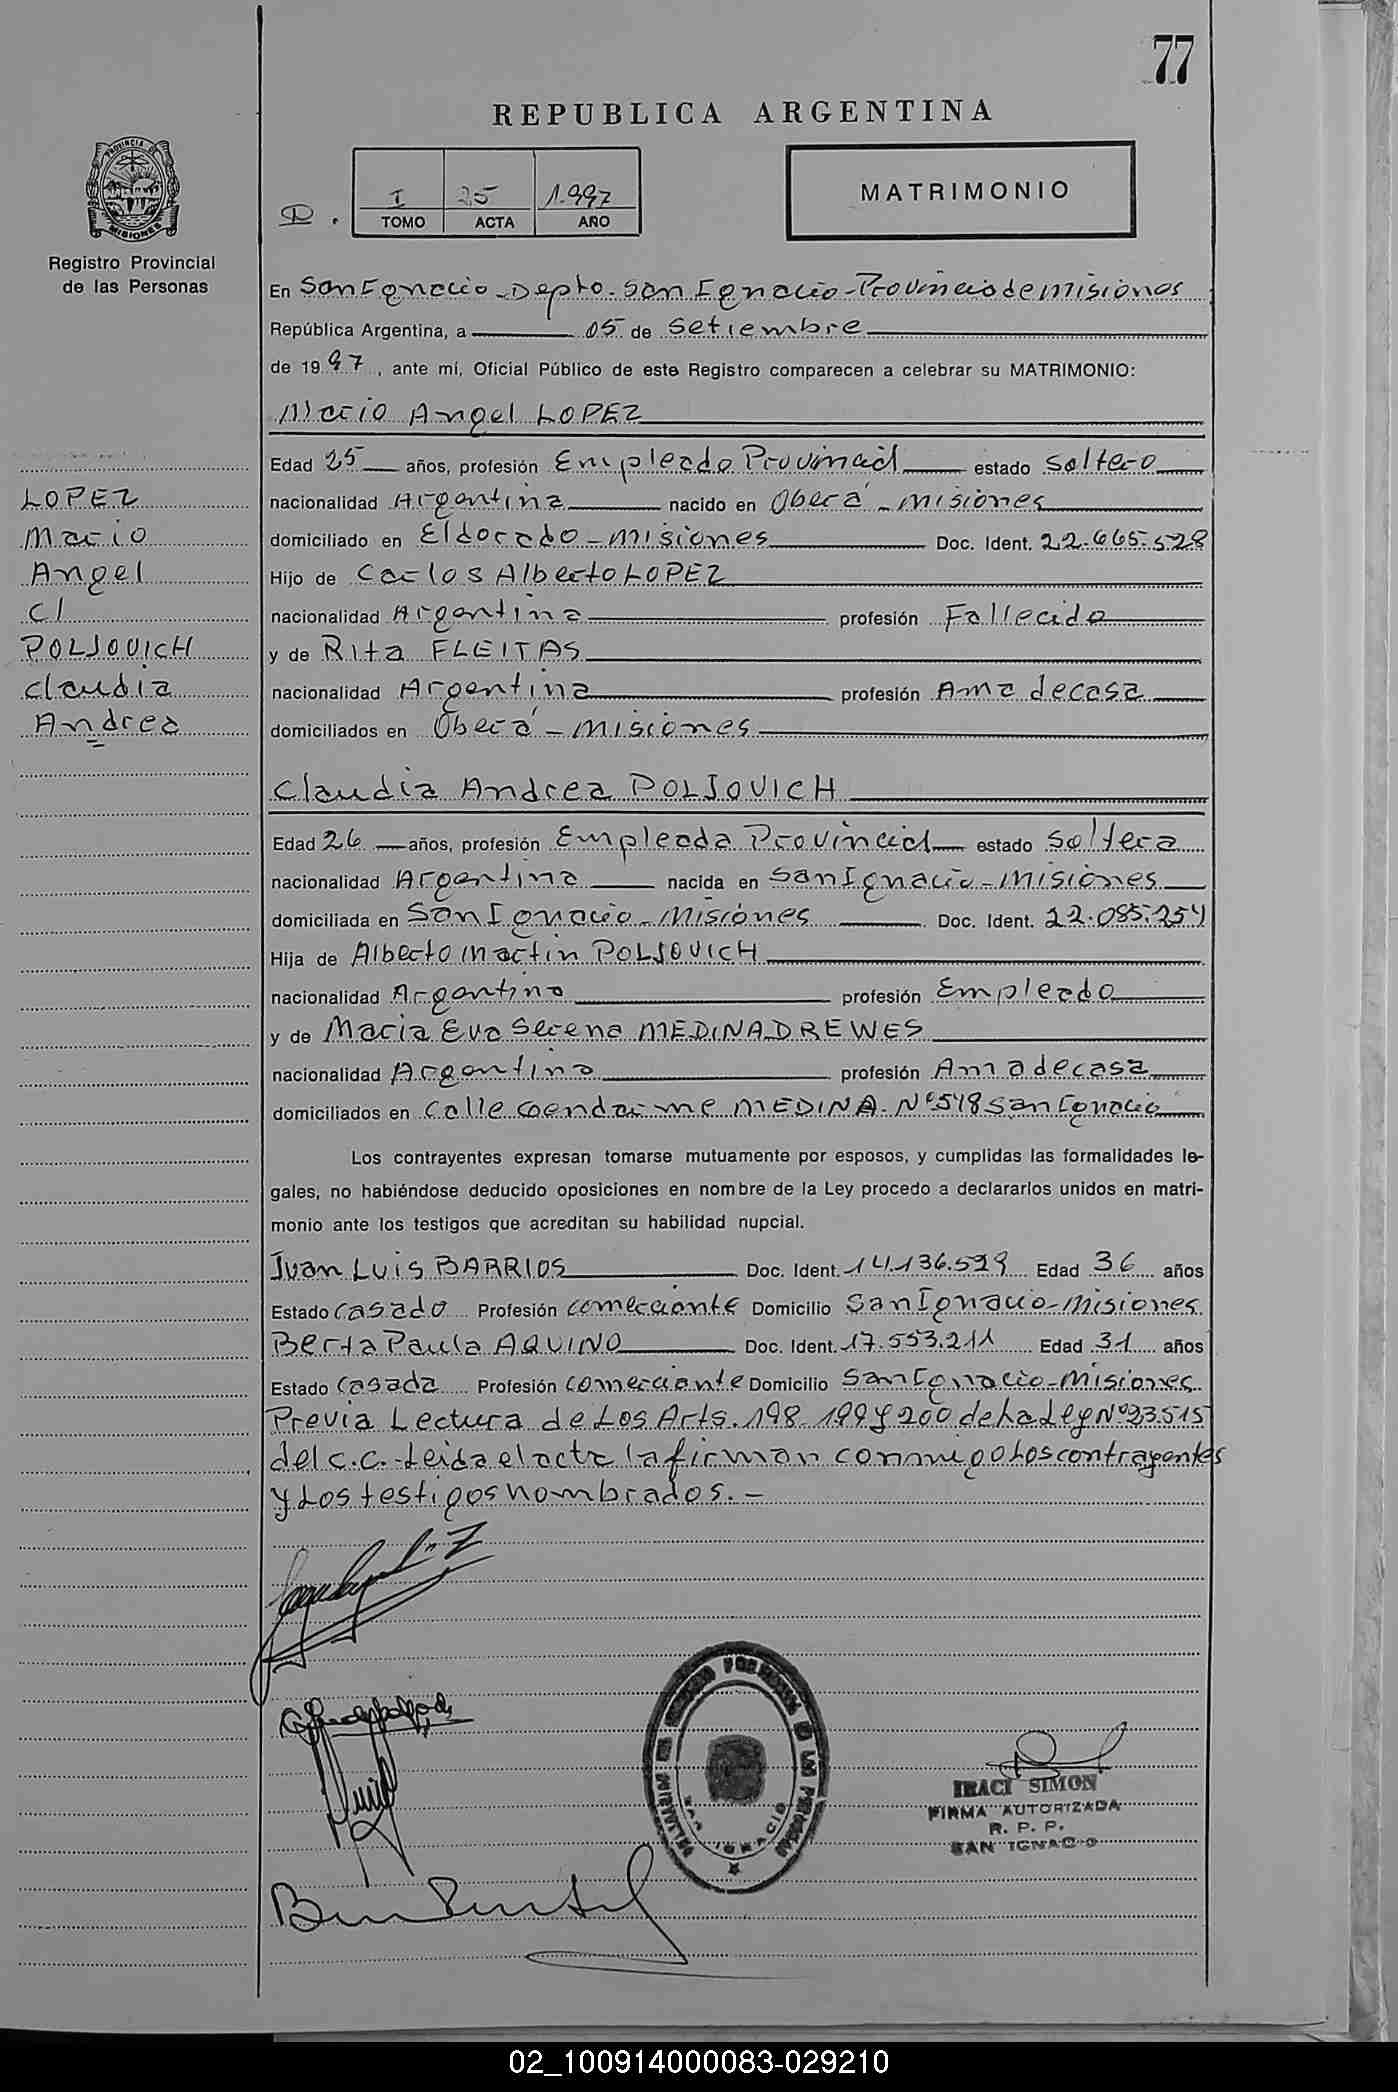 77
REPUBLICA ARGENTINA
PROVINCIA DE MISIONES
Registro Provincial
de las Personas
D. I 25 1.997
TOMO ACTA AÑO
MATRIMONIO
En San Ignacio - Depto. San Ignacio - Provincia de misiones
República Argentina, a 05 de Setiembre
de 1997, ante mí, Oficial Público de este Registro comparecen a celebrar su MATRIMONIO:
Mario Angel LOPEZ
Edad 25 años, profesión Empleado Provincial estado Soltero
nacionalidad Argentina nacido en Oberá - misiones
domiciliado en Eldorado - misiones Doc. Ident. 22.665.528
Hijo de Carlos Alberto LOPEZ
nacionalidad Argentina profesión Fallecido
y de Rita FLEITAS
nacionalidad Argentina profesión Ama de casa
domiciliados en Oberá - misiones
LOPEZ
Mario
Angel
C/
POLJOVICH
Claudia
Andrea
Claudia Andrea POLJOVICH
Edad 26 años, profesión Empleada Provincial estado Soltera
nacionalidad Argentina nacida en San Ignacio - misiones
domiciliada en San Ignacio - Misiones Doc. Ident. 22.085.254
Hija de Alberto Martin POLJOVICH
nacionalidad Argentina profesión Empleado
y de Maria Eva Serena MEDINA DREWES
nacionalidad Argentina profesión Ama de casa
domiciliados en Calle Gendarme MEDINA. Nº 548 San Ignacio
Los contrayentes expresan tomarse mutuamente por esposos, y cumplidas las formalidades le-
gales, no habiéndose deducido oposiciones en nombre de la Ley procedo a declararlos unidos en matri-
monio ante los testigos que acreditan su habilidad nupcial.
Juan Luis BARRIOS Doc. Ident. 14.136.529 Edad 36 años
Estado Casado Profesión comerciante Domicilio San Ignacio - Misiones
Berta Paula AQUINO Doc. Ident. 17.553.211 Edad 31 años
Estado Casada Profesión comerciante Domicilio San Ignacio - Misiones
Previa Lectura de Los Arts. 198. 199 y 200 de La Ley Nº 23.515
del c.c. - Leida el acta la firman conmigo Los contrayentes
y Los testigos nombrados. -
SAN IGNACIO
IRACI SIMON
FIRMA AUTORIZADA
R. P. P.
SAN IGNACIO
02_100914000083-029210